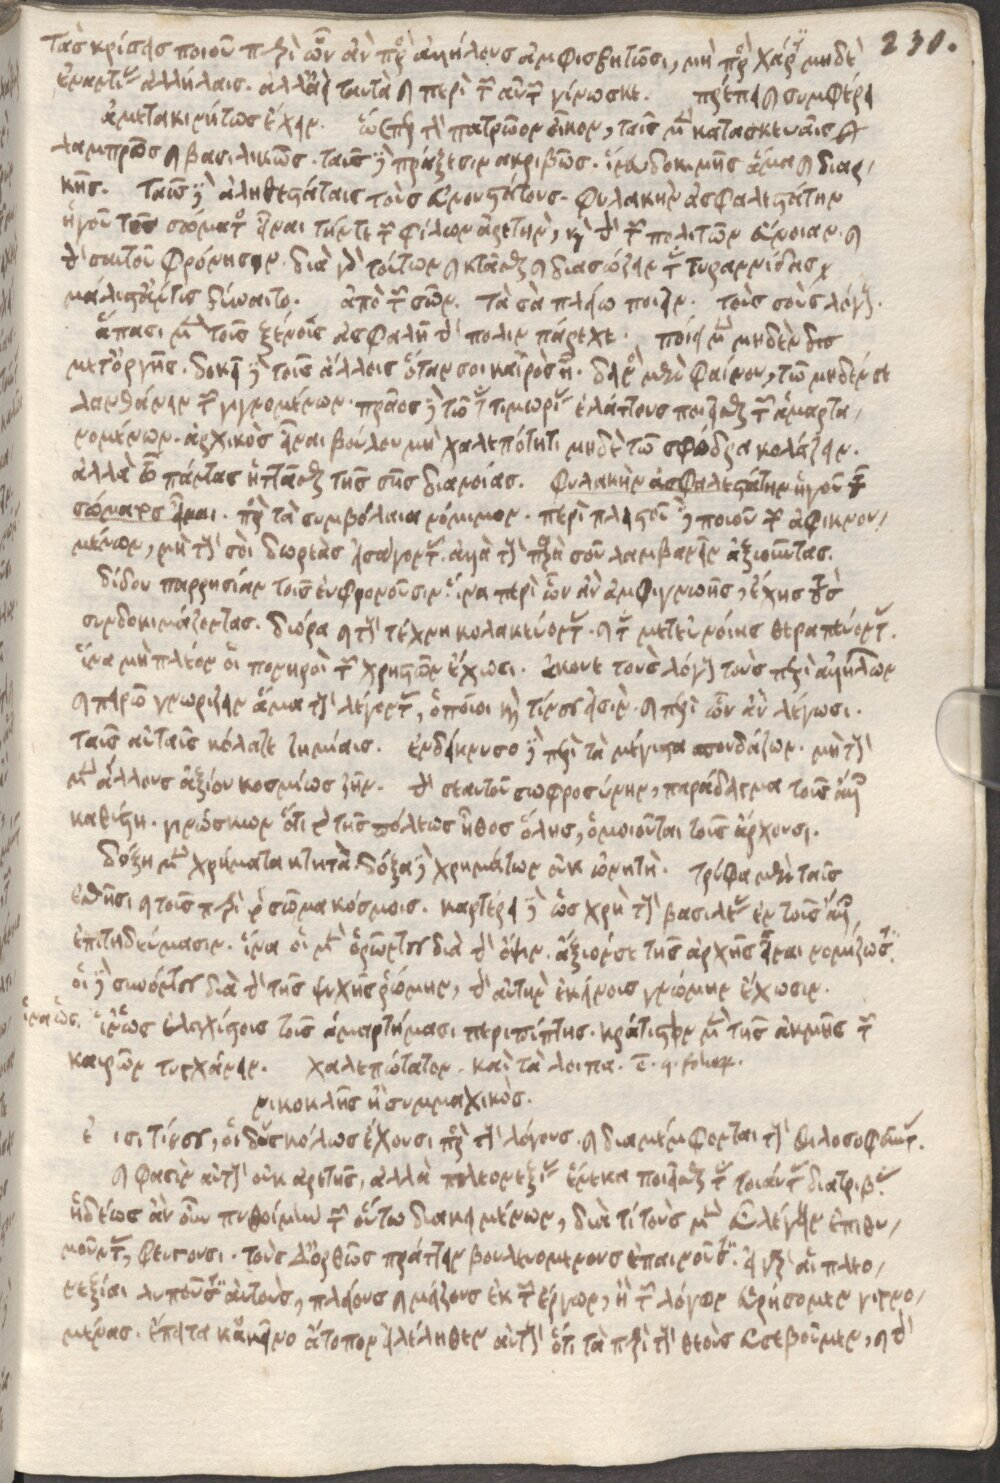 230.
τὰς κρίσεις ποιοῦ περὶ ὧν ἂν πρὸς ἀλλήλους ἀμφισβητῶσι, μὴ πρὸς χάριν μηδὲ
ἐναντίας ἀλλήλαις. ἀλλ' ἀεὶ ταυτὰ καὶ περὶ τῶν αὐτῶν γίνωσκε. πρέπει καὶ συμφέρει
ἀμετακινήτως ἔχειν. ὥσπερ τὸν πατρῷον οἶκον, ταῖς μὲν κατασκευαῖς
λαμπρῶς καὶ βασιλικῶς. ταῖς δὲ πράξεσιν ἀκριβῶς. ἵνα εὐδοκιμῇς ἅμα καὶ διαρ
κῇς. ταῖς δὲ ἀληθεστάταις τοὺς εὐνουστάτους. φυλακὴν ἀσφαλεστάτην
ἡγοῦ τοῦ σώματος εἶναι τήν τε τῶν φίλων ἀρετὴν, καὶ τὴν τῶν πολιτῶν εὔνοιαν. καὶ
τὴν σαυτοῦ φρόνησιν. διὰ γὰρ τούτων καὶ κτᾶσθαι καὶ διασώζειν τὰς τυραννίδας
μάλιστ' ἄν τις δύναιτο. ἀπὸ τῶν σῶν. τὰ σὰ πλείω ποιεῖν. τοὺς σοὺς λόγους.
ἅπασι μὲν τοῖς ξένοις ἀσφαλῆ τὴν πόλιν πάρεχε. ποίει μὲν μηδὲν
μετ' ὀργῆς. δόκει δὲ τοῖς ἄλλοις ὅταν σοι καιρὸς ᾖ. δεινὸς μὲν φαίνου, τῷ μηδέν σε
λανθάνειν τῶν γιγνομένων. πρᾶος δὲ τῷ τὰς τιμωρίας ἐλάττους ποιεῖσθαι τῶν ἁμαρτα
νομένων. ἀρχικὸς εἶναι βούλου μὴ χαλεπότητι μηδὲ τῷ σφόδρα κολάζειν.
ἀλλὰ τῷ πάντας ἡττᾶσθαι τῆς σῆς διανοίας. φυλακὴν ἀσφαλεστάτην ἡγοῦ τοῦ
σώματος εἶναι. πρὸς τὰ συμβόλαια νόμιμον. περὶ πλείστου δὲ ποιοῦ τῶν ἀφικνου
μένων, μὴ τοὺς σοὶ δωρεὰς εἰσάγοντας. ἀλλὰ τοὺς παρὰ σοῦ λαμβάνειν ἀξιοῦντας.
δίδου παρρησίαν τοῖς εὐφρονοῦσιν. ἵνα περὶ ὧν ἂν ἀμφιγνοῇς, ἔχῃς τοὺς
συνδοκιμάζοντας. διόρα καὶ τοὺς τέχνῃ κολακεύοντας. καὶ τοὺς μετ' εὐνοίας θεραπεύοντας.
ἵνα μὴ πλέον οἱ πονηροὶ τῶν χρηστῶν ἔχωσι. ἄκουε τοὺς λόγους τοὺς περὶ ἀλλήλων
καὶ πειρῶ γνωρίζειν ἅμα τοὺς λέγοντας, ὁποῖοι τινές εἰσιν. καὶ περὶ ὧν ἂν λέγωσι.
ταῖς αὐταῖς κόλαζε ζημίαις. ἐνδείκνυσο δὲ περὶ τὰ μέγιστα σπουδάζων. μὴ τοὺς
μὲν ἄλλους ἀξίου κοσμίως ζῆν. τὴν σεαυτοῦ σωφροσύνην, παράδειγμα τοῖς ἄλλοις
καθίστη. γινώσκων ὅτι τὸ τῆς πόλεως ἦθος ὅλης, ὁμοιοῦται τοῖς ἄρχουσι.
δόξῃ μὲν χρήματα κτητὰ. δόξα δὲ χρημάτων οὐκ ὠνητή. τρύφα μὲν ταῖς
ἐσθῆσι καὶ τοῖς περὶ τὸ σῶμα κόσμοις. καρτέρει δὲ ὡς χρὴ τοὺς βασιλέας ἐν τοῖς ἄλλοις
ἐπιτηδεύμασιν. ἵνα οἱ μὲν ὁρῶντες διὰ τὴν ὄψιν. ἄξιόν σε τῆς ἀρχῆς εἶναι νομίζωσι.
οἱ δὲ συνόντες διὰ τὴν τῆς ψυχῆς ῥώμην, τὴν αὐτὴν ἐκείνοις γνώμην ἔχωσιν.
ἵνα ὡς. ἵν' ὡς ἐλαχίστοις τοῖς ἁμαρτήμασι περιπίπτῃς. κράτιστον μὲν τῆς ἀκμῆς τῶν
καιρῶν τυγχάνειν. χαλεπώτατον. καὶ τὰ λοιπα.
νικοκλῆς ἢ συμμαχικὸς.
εἰσί τινες, οἳ δυσκόλως ἔχουσι πρὸς τοὺς λόγους. καὶ διαμέμφονται τοὺς φιλοσοφοῦντας.
καὶ φασὶν αὐτοὺς οὐκ ἀρετῆς, ἀλλὰ πλεονεξίας ἕνεκα ποιεῖσθαι τὰς τοιαύτας διατριβάς.
ἡδέως ἂν οὖν πυθοίμην τῶν οὕτω διακειμένων, διὰ τί τοὺς μὲν εὖ λέγειν ἐπιθυ
μοῦντας, ψέγουσι. τοὺς δ' ὀρθῶς πράττειν βουλευομένους ἐπαινοῦσιν. εἰ γὰρ αἱ πλεο
νεξίαι λυποῦσιν αὐτοὺς, πλείους καὶ μείζους ἐκ τῶν ἔργων, ἢ τῶν λόγων εὑρήσομεν γιγνο
μένας. ἔπειτα κἀκεῖνο ἄτοπον εἰ λέληθεν αὐτοὺς ὅτι τὰ περὶ τοὺς θεοὺς εὐσεβοῦμεν, καὶ τὴν